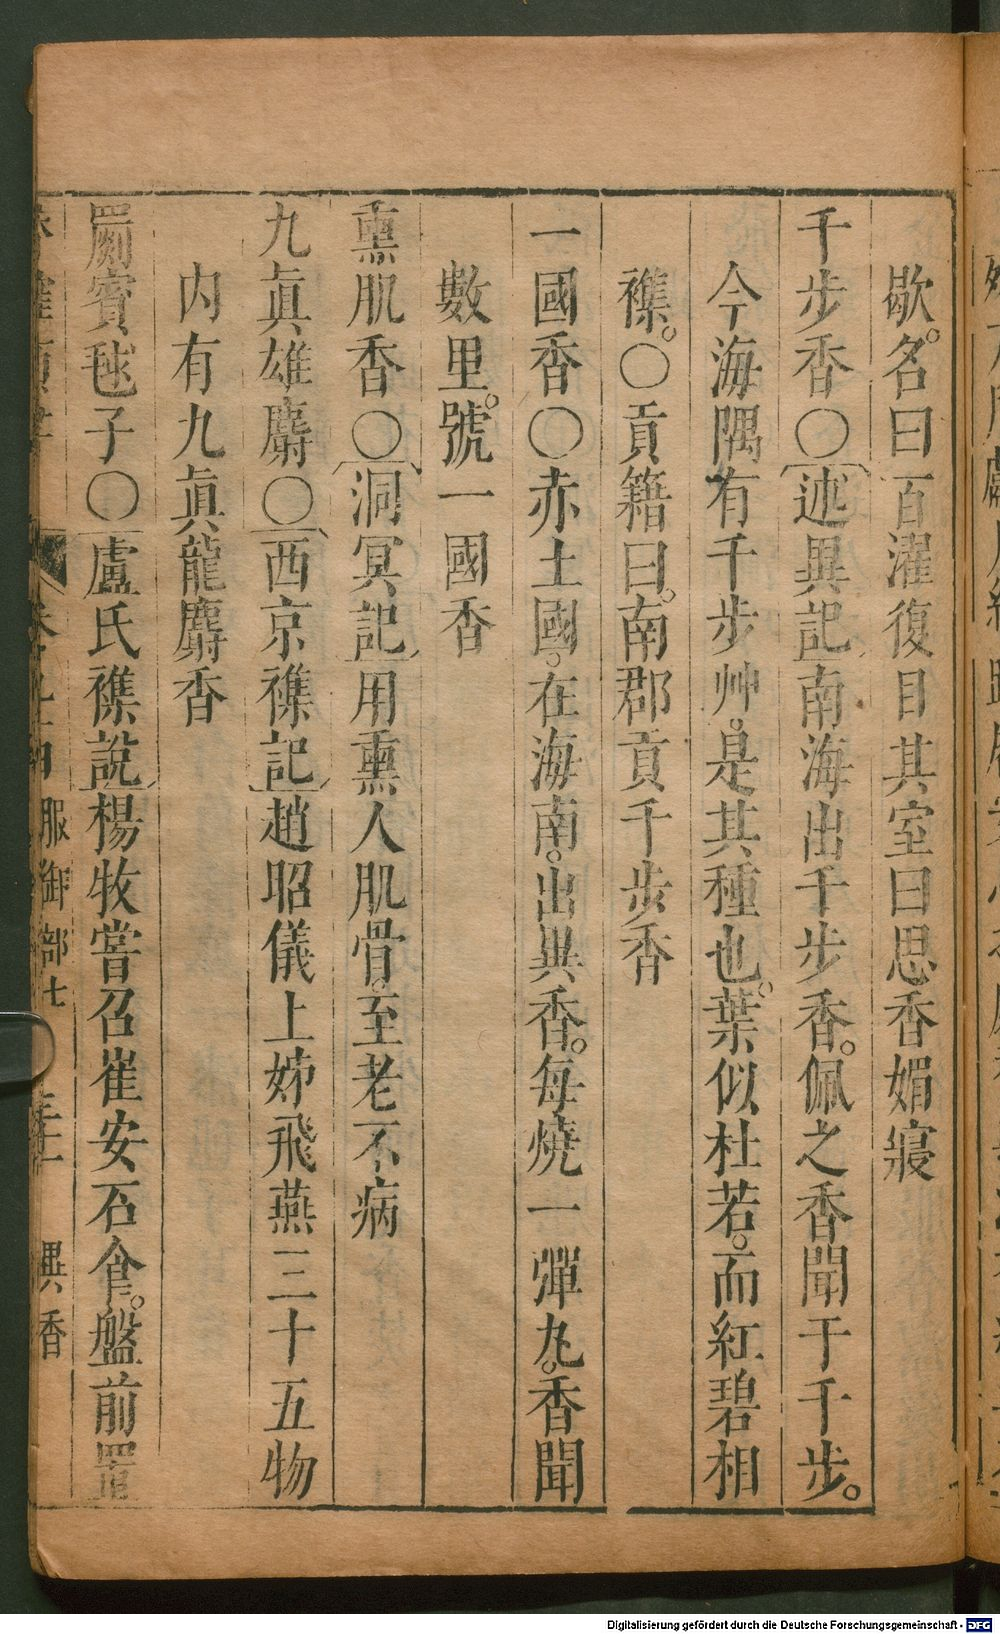 歇。名曰百濯復目其室曰思香媚寢
千步香〇述異記南海出千步香。佩之香聞于千步。
今海隅有千步艸。是其種也。葉似杜若。而紅碧相
襍。〇貢籍曰。南郡貢千步香
一國香〇赤土國。在海南。出異香。每燒一彈丸。香聞
數里。號一國香
熏肌香〇洞冥記用熏人肌骨。至老不病
九眞雄麝〇西京襍記趙昭儀上姊飛燕三十五物
内有九眞龍麝香
罽賓毬子〇盧氏襍說楊牧嘗召崔安石食。盤前置
服御部七 異香
Digitalisierung gefördert durch die Deutsche Forschungsgemeinschaft - DFG